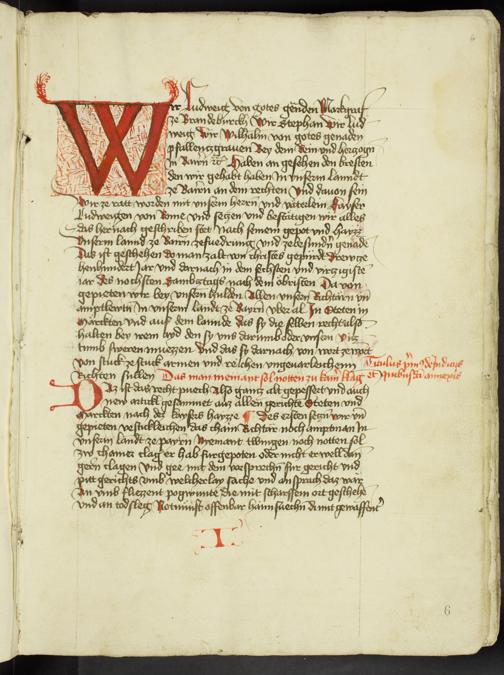 Wir Ludweig von gotes genden Markgraf
ze Brandeburckh Wir Stephan Wir Lud
weig Wir Wilhalm von gotes genaden
pfallenczgrauen Bey dem Rein vnd herczogn
in Bairn etc Haben an gesehen den bresten
den wir gehabt haben in vnserm lannde
ze Bairn an dem rechten vnd davon sein
wir ze ratt worden mit vnserm herrn vnd vaterlein Kayser
Ludweigen von Rome vnd seczen vnd bestätigen wir alles
das hernach geschriben stet nach seinem gepot vnd haizz
vnserm lannd ze Bairn ze fuedrung vnd ze besundern genade
Daz ist geschehen do man zalt von christes gepurd Drewcze
henhundert Jar vnd darnach in dem sechsten vnd virczigiste
iar des nechsten Sambcztags nach dem obristen Da von
gepieten wir bey vnsern hulden Allen vnsern Richtärn vnd
amptlewtn in vnserm lannde ze Bairn vberal In Steten in
Märckten vnd auf dem lannde das sy die selben recht also
halten bey irem ayd den sy vns darumb oder vnsern Vicz
tumb sweren muezzen Vnd das sy darnach von wort ze wort
von stuck ze stuck armen vnd reichen vngeuarleichenn
Richten sullen Das man niemant sol notten zu kain klag
Daz ist das recht puech also gancz alt gepessert vnd auch
new artickl gesammet auz allen gerichten Steten vnd
Märckten nach des kaysers haizze Des ersten seczn wir vnd
gepieten vesticklichen das chain Richtär noch amptman in
vnserm landt ze payrn Nyemant twingen noch notten sol
zw chainer clag er hab fürgepoten oder nicht er well dan
gern clagen Vnd gee mit dem vorsprechn für gericht vnd
pitt gerichts vmb welherlay sache vnd anspruch daz war
An vmb fliezzent pogwunte die mit scharffem ort geschehe
vnd an todsleg Notnunft offenbar haimsuechn di mit gewaffent
I
6